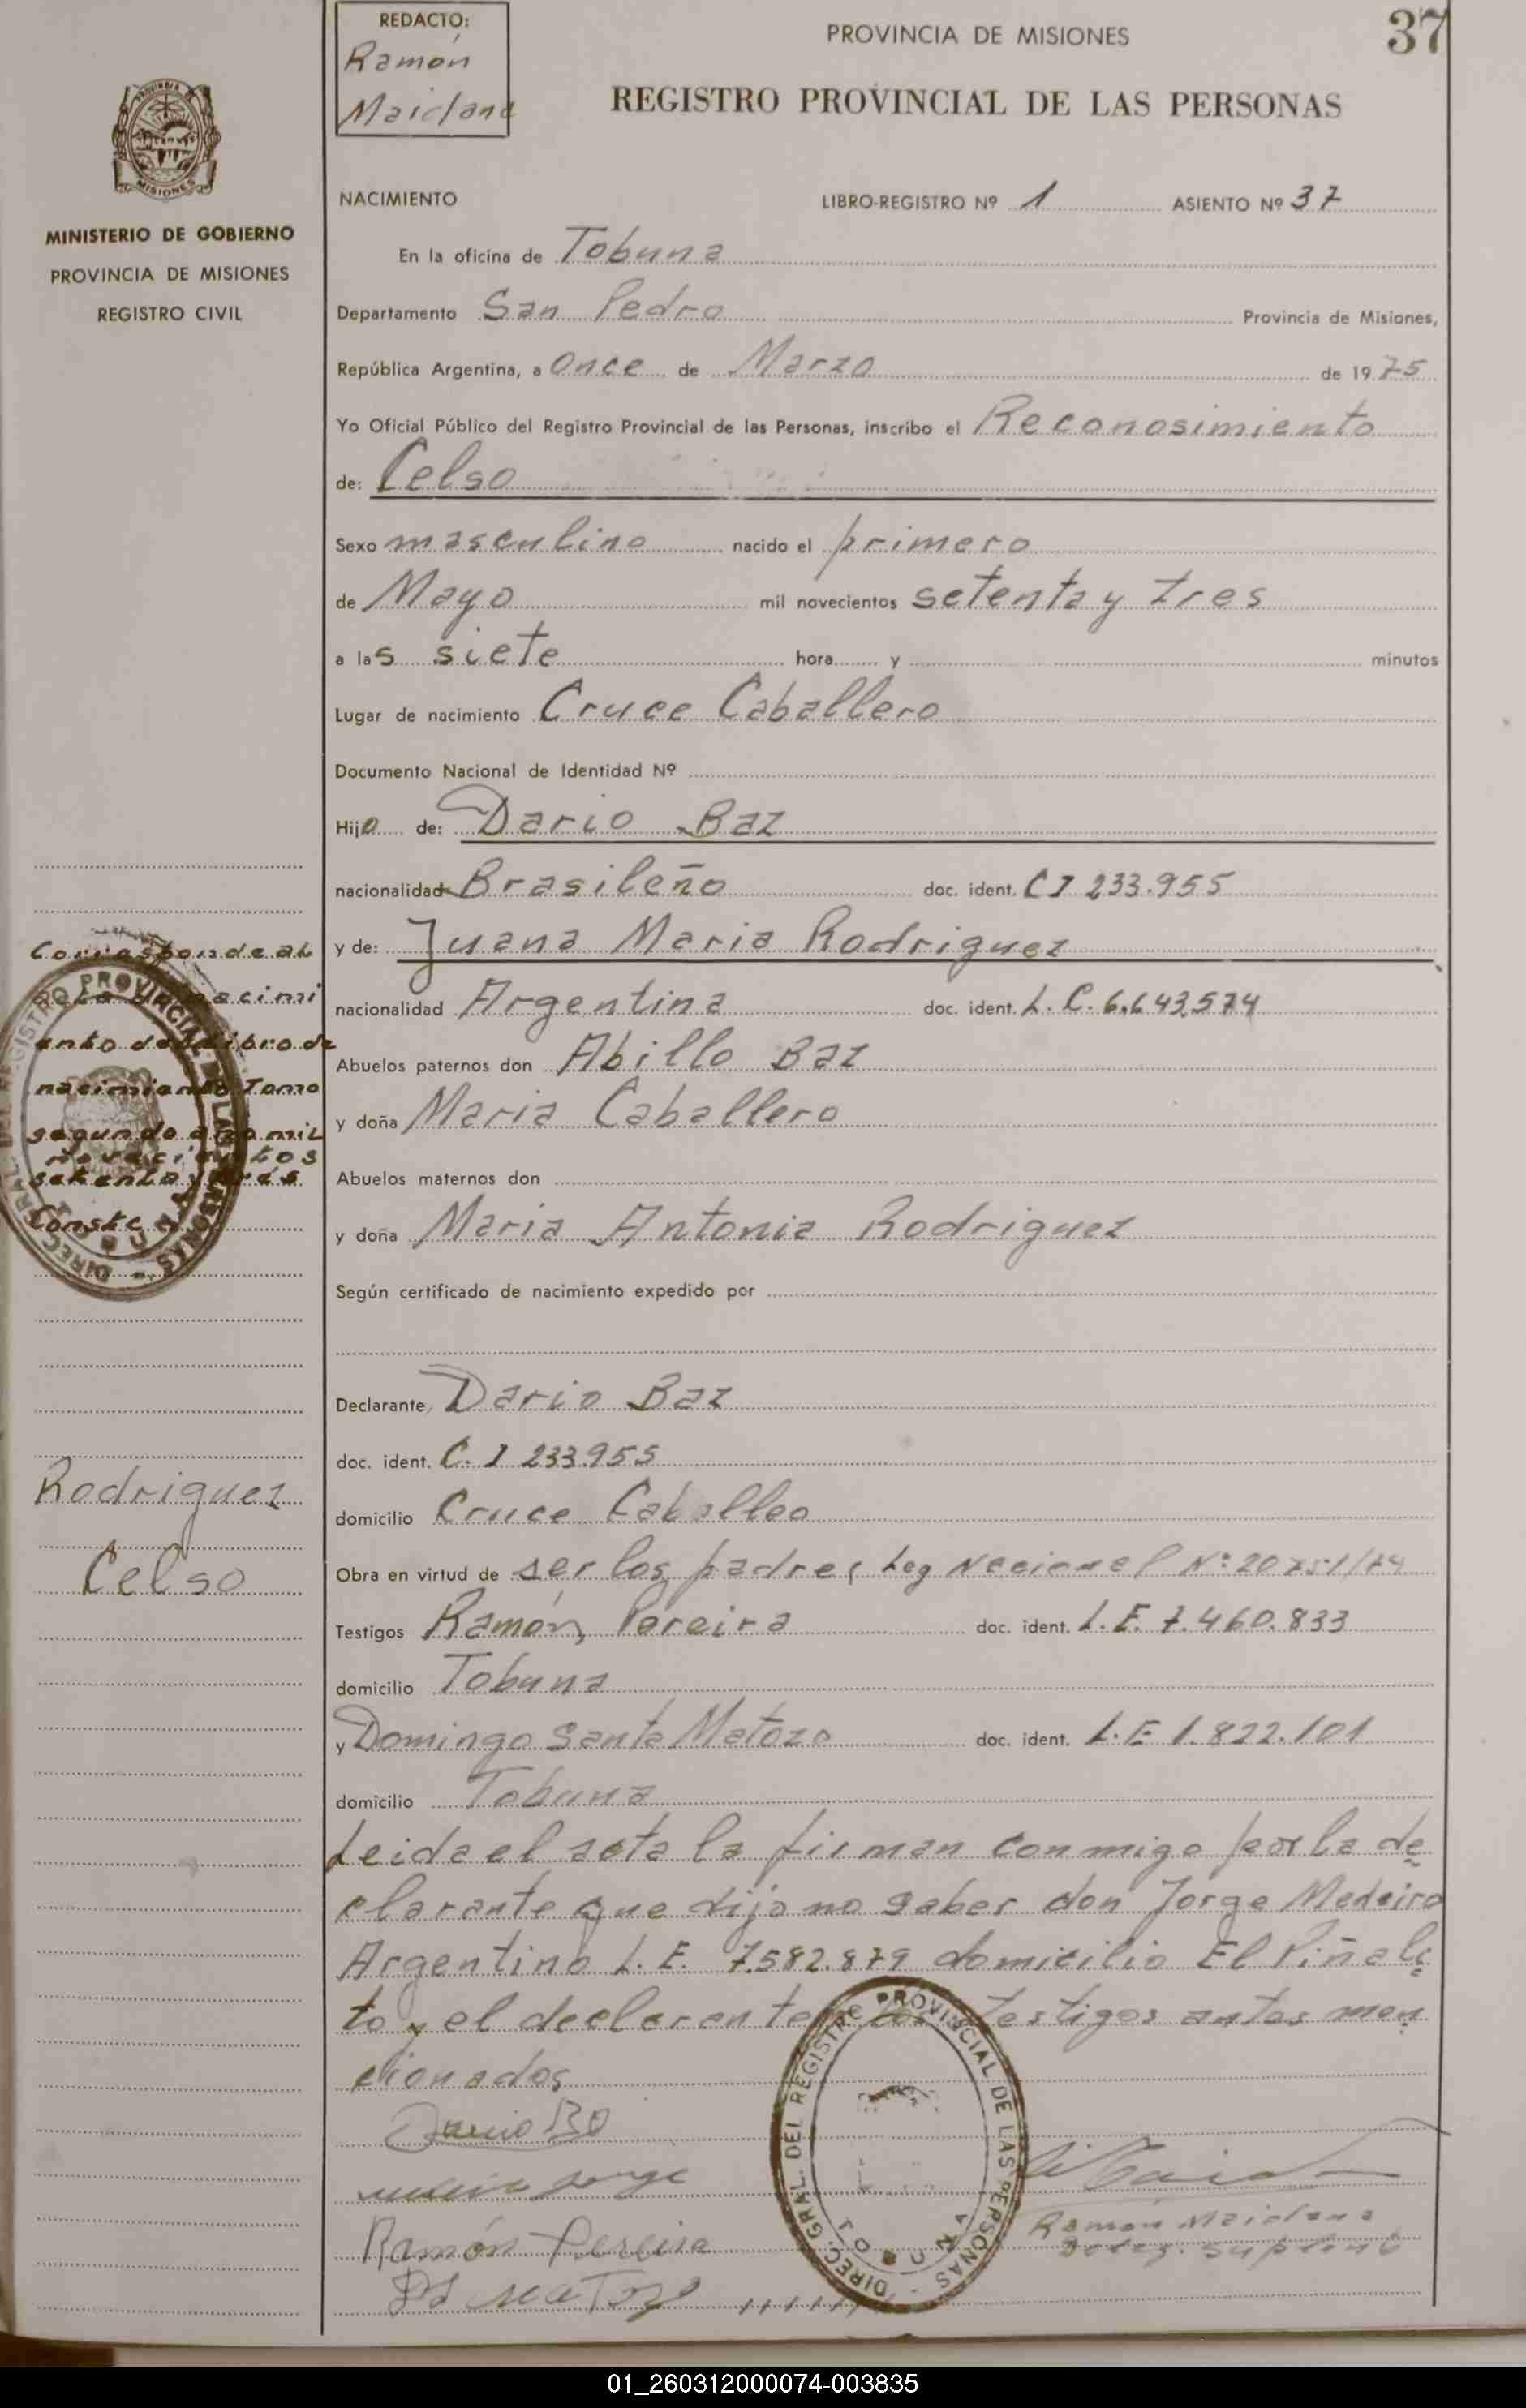 REDACTO:
Ramón
Maidana
PROVINCIA DE MISIONES
37
REGISTRO PROVINCIAL DE LAS PERSONAS
MISIONES
MINISTERIO DE GOBIERNO
PROVINCIA DE MISIONES
REGISTRO CIVIL
NACIMIENTO LIBRO-REGISTRO Nº 1 ASIENTO Nº 37
En la oficina de Tobuna
Departamento San Pedro Provincia de Misiones,
República Argentina, a Once de Marzo de 1975
Yo Oficial Público del Registro Provincial de las Personas, inscribo el Reconosimiento
de: Celso
Sexo masculino nacido el primero
de Mayo mil novecientos setenta y tres
a las siete hora y minutos
Lugar de nacimiento Cruce Caballero
Documento Nacional de Identidad Nº
Hijo de: Dario Baz
nacionalidad Brasileño doc. ident. CI 233.955
y de: Juana Maria Rodriguez
nacionalidad Argentina doc. ident. L. C. 6.643.574
Abuelos paternos don Abillo Baz
y doña Maria Caballero
Abuelos maternos don
y doña Maria Antonia Rodriguez
Según certificado de nacimiento expedido por
Declarante Dario Baz
doc. ident. C. I 233.955
domicilio Cruce Caballeo
Obra en virtud de ser los padres Ley Nacional Nº 20751/74
Testigos Ramón Pereira doc. ident. L. E. 7.460.833
domicilio Tobuna
y Domingo Santa Matozo doc. ident. L.E 1.822.101
domicilio Tobuna
Leida el acta la firman conmigo por la de
clarante que dijo no saber don Jorge Medeiro
Argentino L. E. 7.582.879 domicilio El Piñali
to y el declarante y los testigos antes men
cionados
Corresponde al
acta de nacimi
ento del libro de
nacimiento Tomo
segundo año mil
novecientos
setenta y trés
Conste
Rodriguez
Celso
DIREC. GRAL. DEL REGISTRO PROVINCIAL DE LAS PERSONAS
TOBUNA
Ramón Pereira
DS Matozo
Ramón Maidana
Deleg. suplente
DIREC. GRAL. DEL REGISTRO PROVINCIAL DE LAS PERSONAS
TOBUNA
01_260312000074-003835